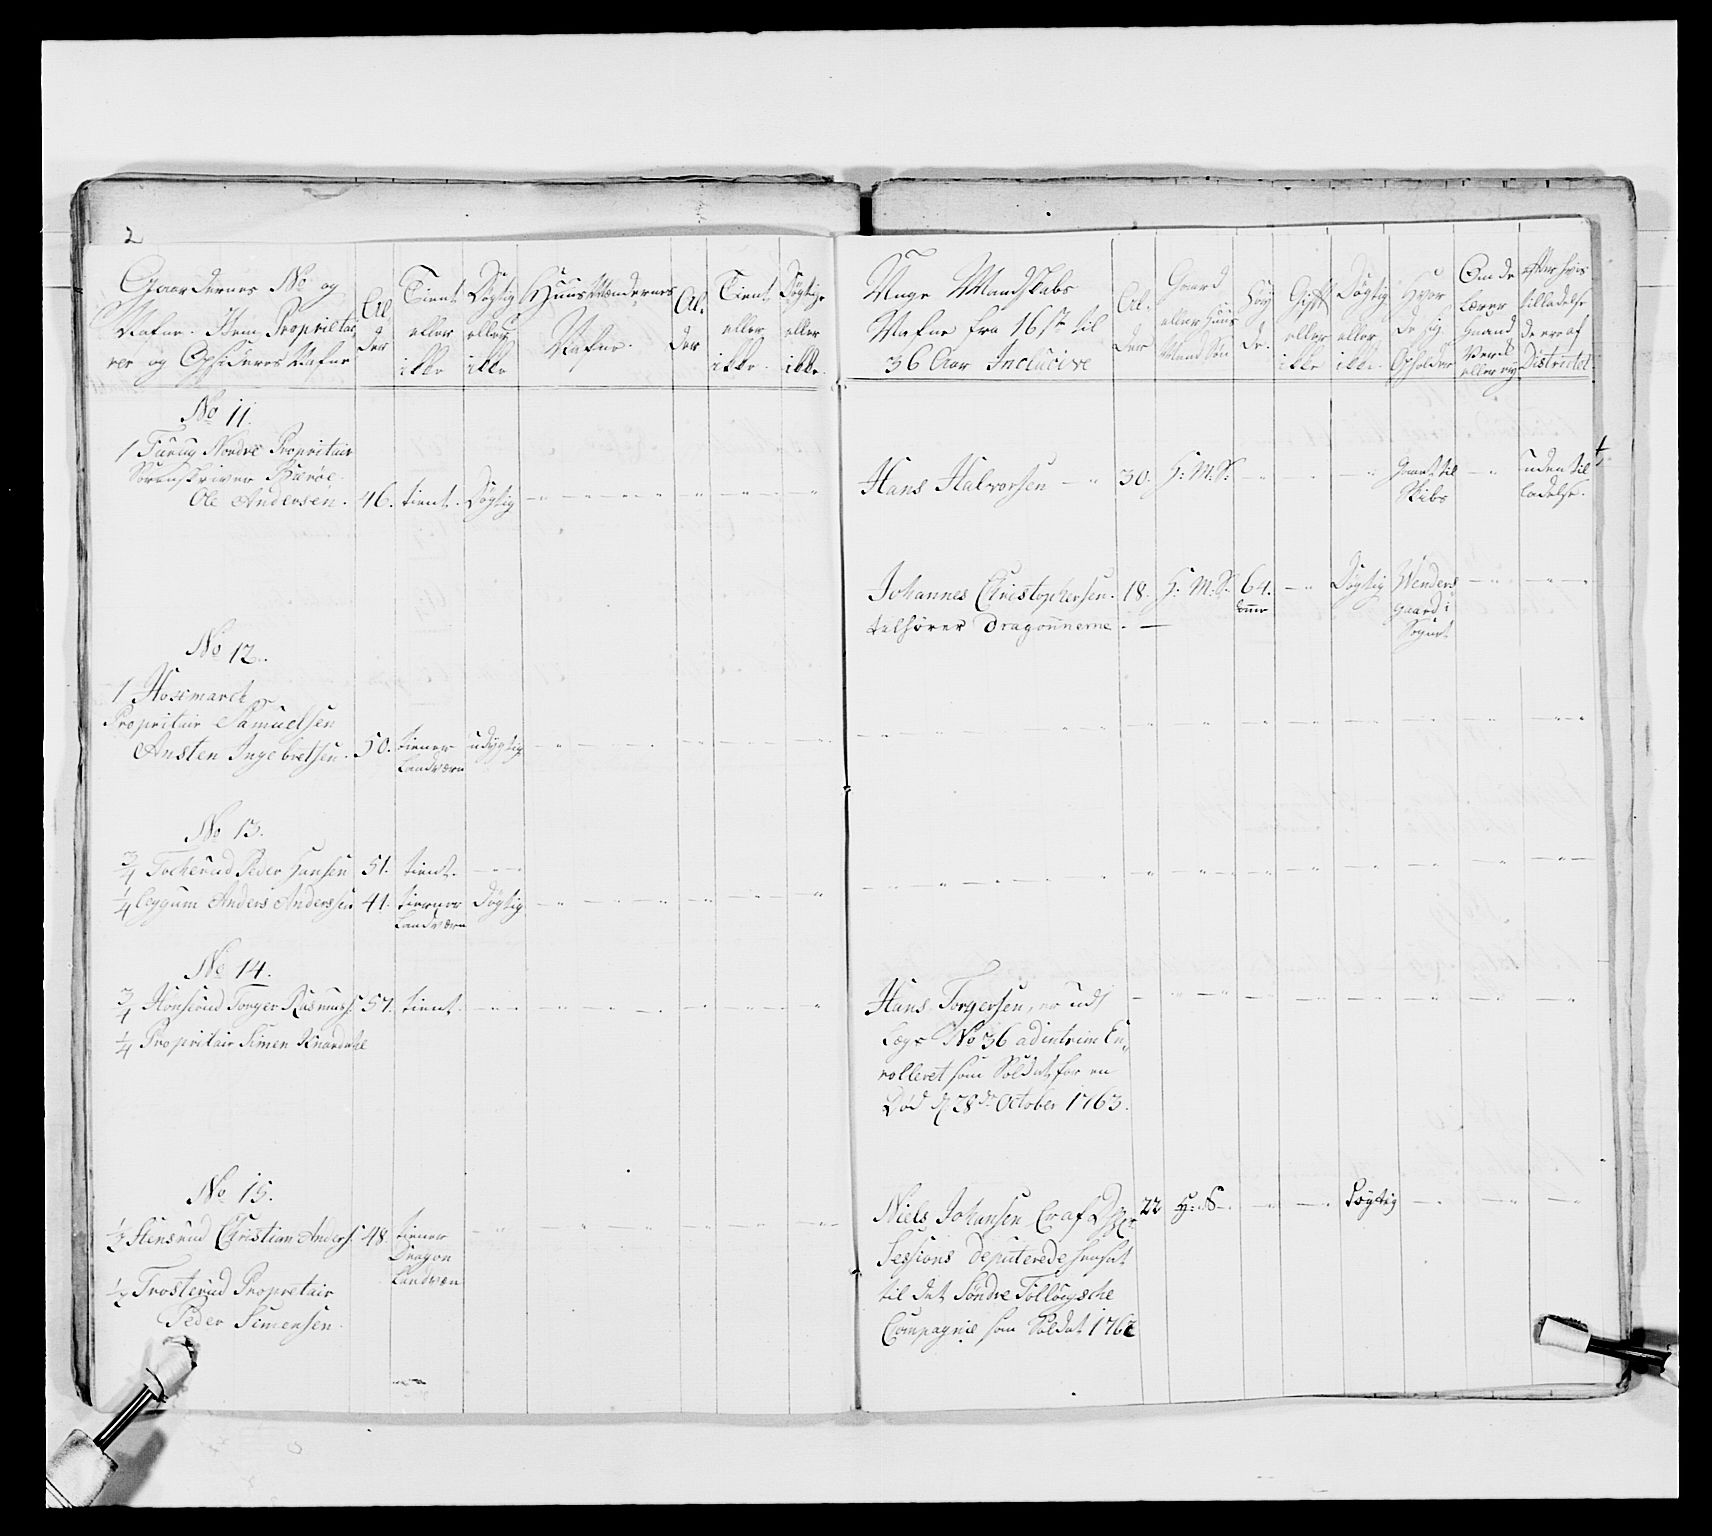 2
Gaardernes No og
Nafne. Item Proprietai
rer og Opsideres Nafne
Al
der
Tient
eller
ikke
Dögtig
eller
ikke
Huus Mændernes
Nafne.
Al.
der
Tient
eller
ikke.
Dögtige
eller
ikke.
No 11.
1 Furug Nordre Proprietair
Sorenskriver Barøe
Ole Andersen. 46. tient. Dögtig
No 12.
1 Hosemarck
Propritair Samuelsen
Ansten Ingebretsen. 50. tiener udygtig
Landværn
No 13.
3/4 Tockerud Peder Hansen 51. tient.
1/4 Leggum Anders Anderssen 41. tierner Dögtig
Landværn
No 14.
3/4 Honsrud Torger Rasmuss. 57. tient.
1/4 Propritair Simen Knardahl
No 15.
1/2 Stensrud Christian Anders. 48. tiener
Dragon
Landværn
1/2 Trosterud Propretair
Peder Simensen.
Unge Mandskabs
Nafne fra 16 st. til
36 Aar Inclucive
Al.
der
Gaard
eller Huus
Mand Søn
Høy
de.
Gift
eller
ikke
Dögtig
eller
ikke.
Hvor
de sig
Opholder
Om de
Lærer
Haand
Verck
eller ey
efter hvis
tilladelse
de ere af
Districtet
Hans Halvorsen 30. H. M. S. Gaaet til uden til
Skibs ladelse.
Johannes Christophersen. 18. H. M. S. 64. Dögtig Wenders
telhører Dragonnerne. tomer gaard i
Sognet
Hans Torgersen, er udj
Lægs No 36 ad intrim En
rolleret som Soldat for en
Død d. 28de October 1763.
Niels Johansen Er af D 22 H: S Dögtig
Sessions deputerede hensat
til det Söndre Follougsche
Compagnie som Soldat 1767